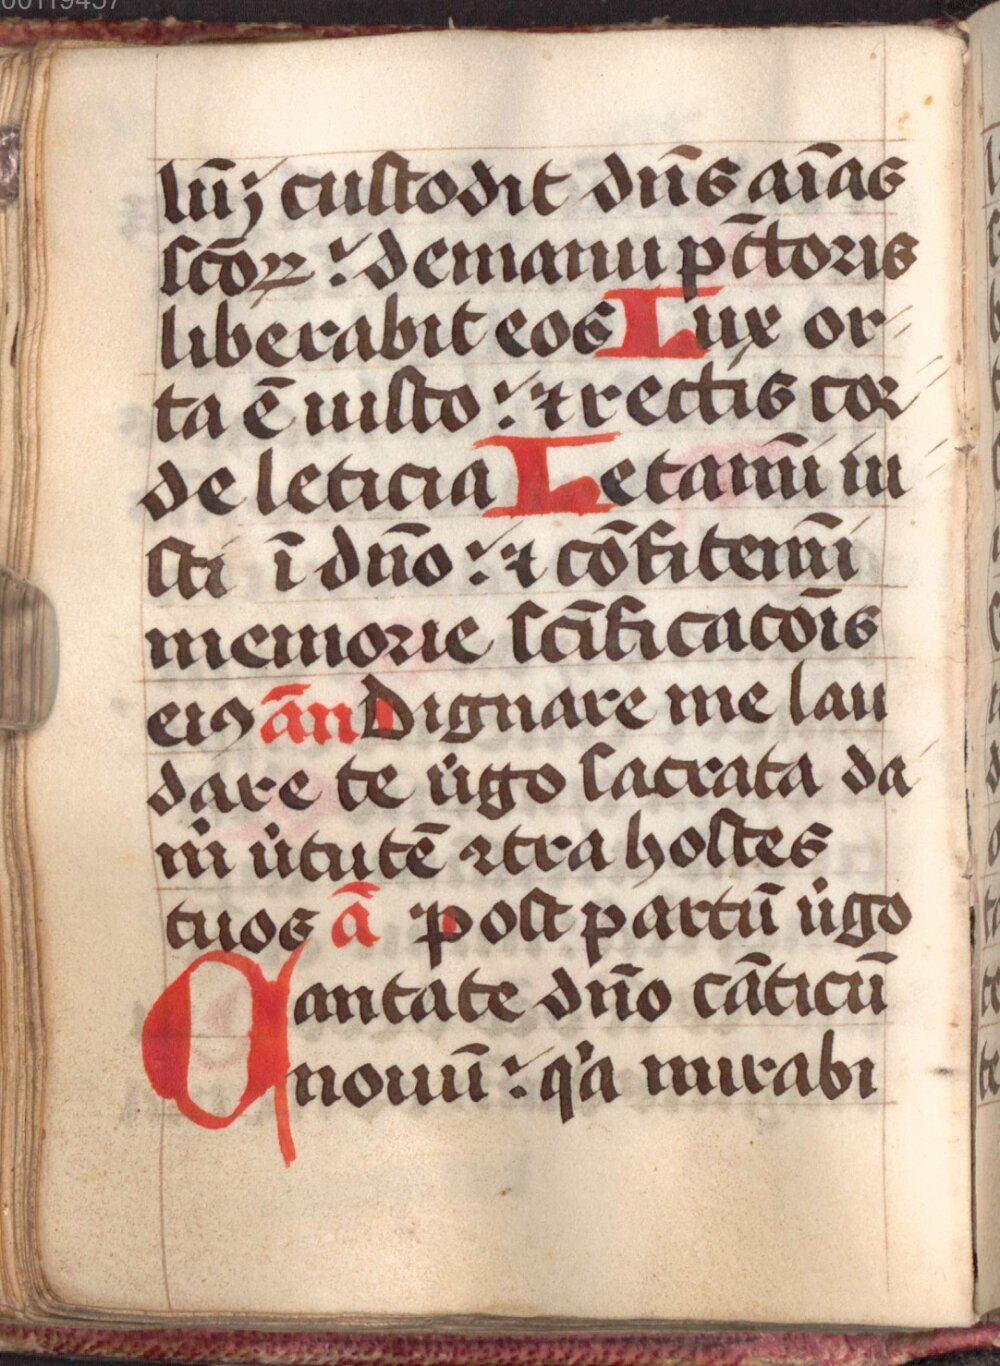 00119457
lū̄ꝫ custodit dn̄s aīas
scōꝝ : de manu pc̄toris
liberabit eos Lux or-
ta ē iusto : ⁊ rectis cor-
de leticia Letamī iu-
sti ī dn̄o : ⁊ cōfitemī
memorie sc̄ificacōīs
eiꝰ ān Dignare me lau
dare te ùgo sacrata da
m̍ ùtutē ꝯtra hostes
tuos ā post partū ùgo
Cantate dn̄o cāticū
nouū : q̍a mirabi